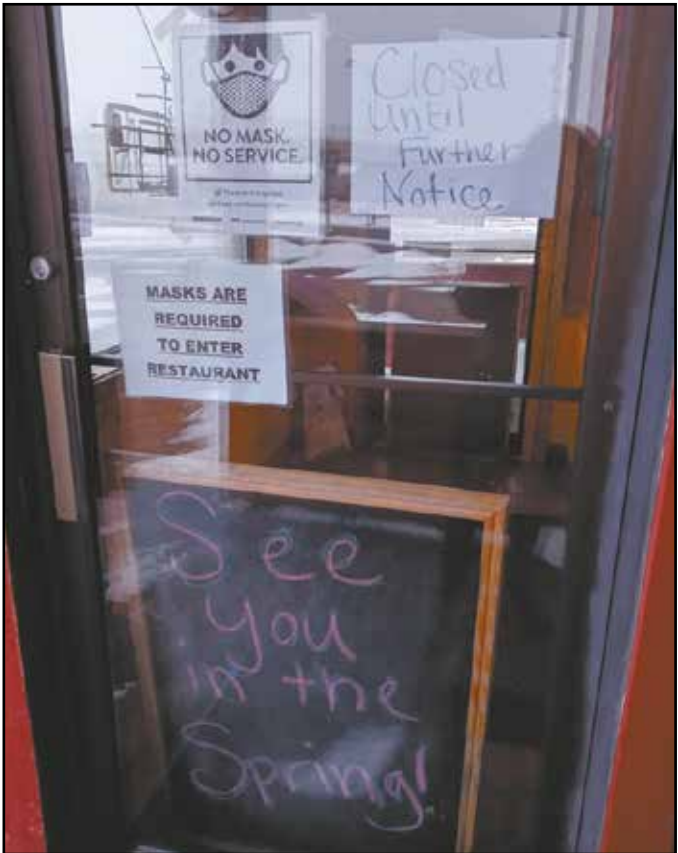 NO MASK.
NO SERVICE.
Closed
Until
Further
Notice
MASKS ARE
REQUIRED
TO ENTER
RESTAURANT
See
you
in the
Spring!